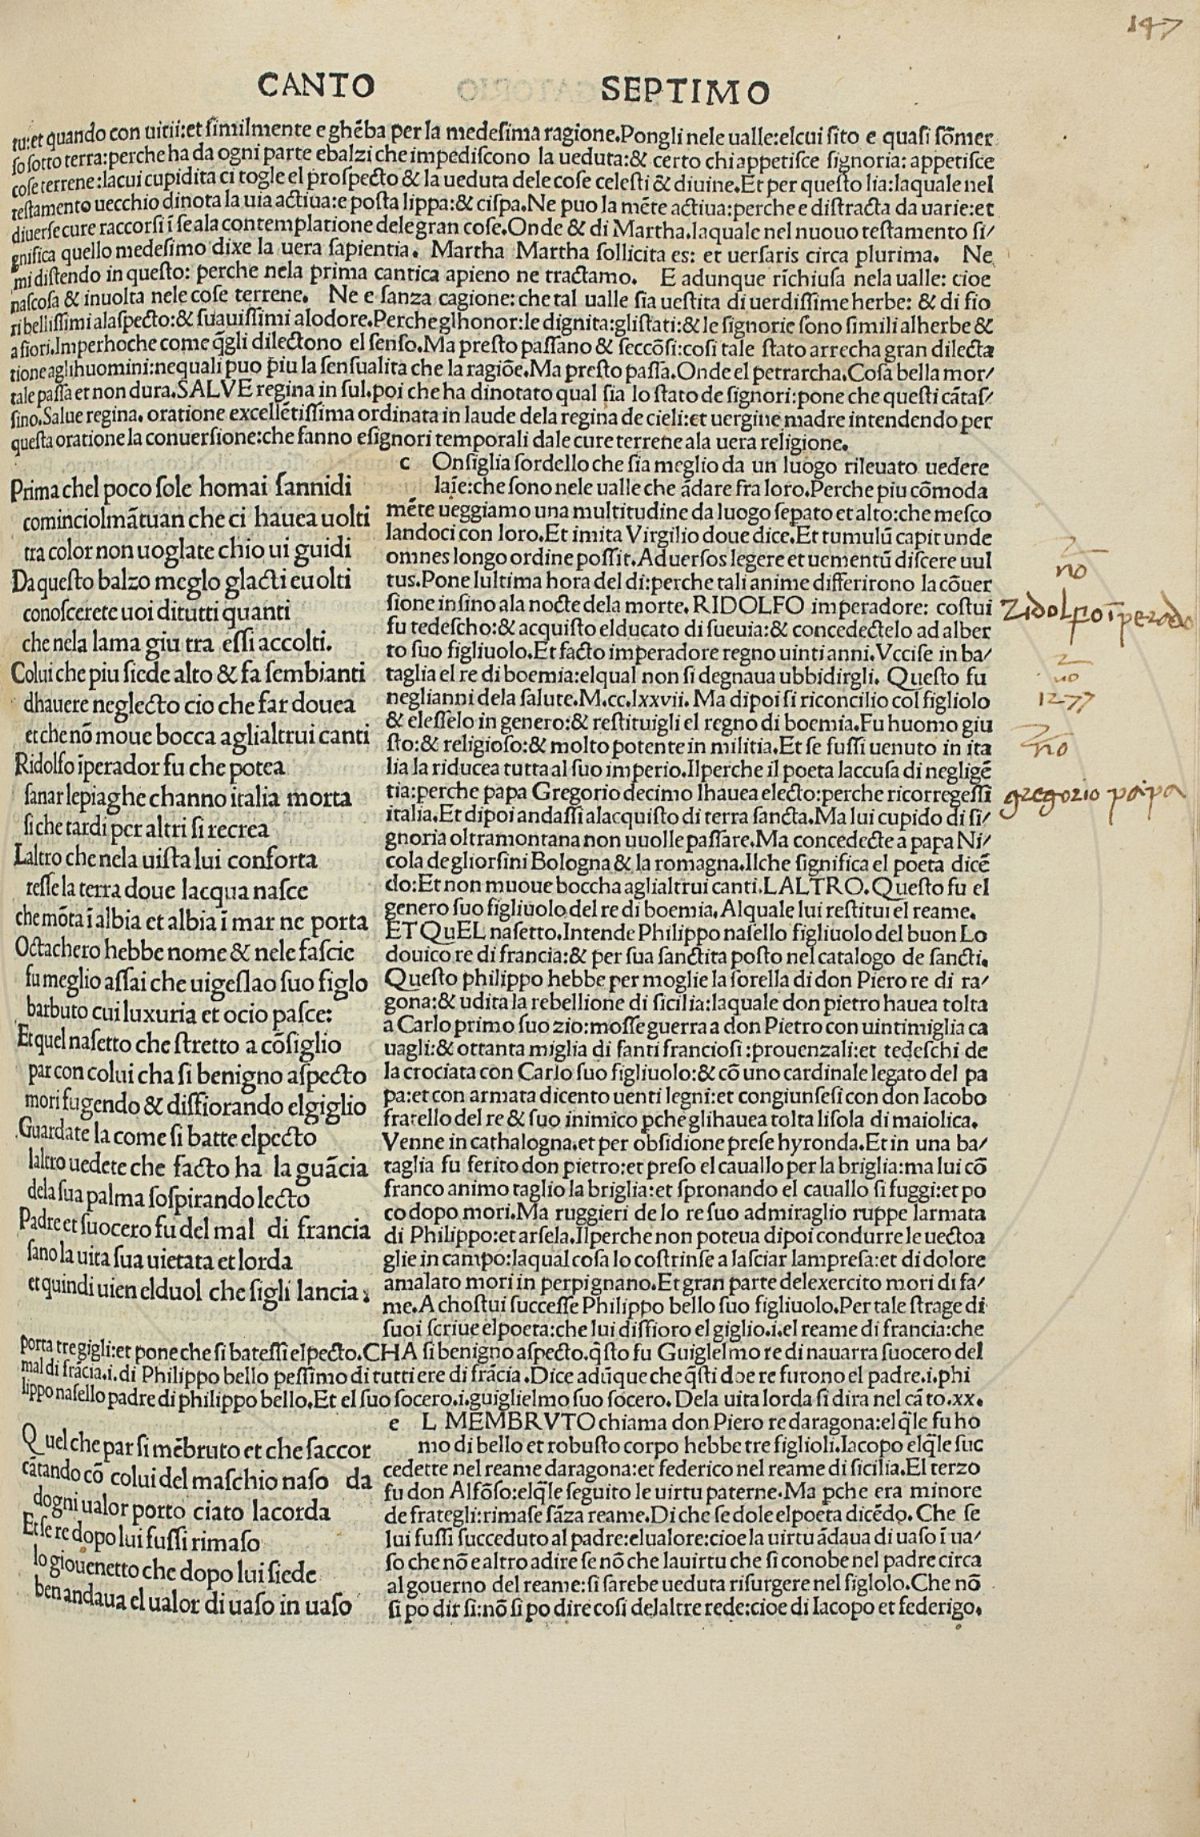 147
CANTO SEPTIMO
tu:et quando con uitii:et similmente e ghēba per la medesima ragione.Pongli nele ualle:elcui sito e quasi sōmer
so sotto terra:perche ha da ogni parte ebalzi che impediscono la ueduta:& certo chi appetisce signoria: appetisce
cose terrene:lacui cupidita ci togle el prospecto & la ueduta dele cose celesti & diuine.Et per questo lia:laquale nel
testamento uecchio dinota la uia actiua:e posta lippa:& cispa.Ne puo la mēte actiua:perche e distracta da uarie:et
diuerse cure raccorsi ī se ala contemplatione dele gran cose.Onde & di Martha.laquale nel nuouo testamento si/
gnifica quello medesimo dixe la uera sapientia. Martha Martha sollicita es: et uersaris circa plurima. Ne
mi distendo in questo: perche nela prima cantica apieno ne tractamo. E adunque rīchiusa nela ualle: cioe
nascosa & inuolta nele cose terrene. Ne e sanza cagione:che tal ualle sia uestita di uerdissime herbe: & di fio
ri bellissimi alaspecto:& suauissimi alodore.Perche glhonor:le dignita:glistati:& le signorie sono simili alherbe &
a fiori.Imperhoche come q̄gli dilectono el senso.Ma presto passano & seccōsi:cosi tale stato arrecha gran dilecta
tione aglihuomini:nequali puo piu la sensualita che la ragiōe.Ma presto passa.Onde el petrarcha.Cosa bella mor/
tale passa et non dura.SALVE regina in sul.poi che ha dinotato qual sia lo stato de signori:pone che questi cātas/
sino.Salue regina. oratione excellētissima ordinata in laude dela regina de cieli:et uergine madre intendendo per
questa oratione la conuersione:che fanno esignori temporali dale cure terrene ala uera religione.
Prima chel poco sole homai sannidi
cominciolmātuan che ci hauea uolti
tra color non uoglate chio ui guidi
Da questo balzo meglo glacti euolti
conoscerete uoi ditutti quanti
che nela lama giu tra essi accolti.
Colui che piu siede alto & fa sembianti
dhauere neglecto cio che far douea
et che nō moue bocca aglialtrui canti
Ridolfo īperador fu che potea
sanar lepiaghe channo italia morta
si che tardi per altri si recrea
Laltro che nela uista lui conforta
resse la terra doue lacqua nasce
che mōta ī albia et albia ī mar ne porta
Octachero hebbe nome & nele fascie
fu meglio assai che uigeslao suo figlo
barbuto cui luxuria et ocio pasce:
Et quel nasetto che stretto a cōsiglio
par con colui cha si benigno aspecto
mori fugendo & disfiorando elgiglio
Guardate la come si batte elpecto
laltro uedete che facto ha la guācia
dela sua palma sospirando lecto
Padre et suocero fu del mal di francia
sano la uita sua uietata et lorda
et quindi uien elduol che sigli lancia;
c Onsiglia sordello che sia meglio da un luogo rileuato uedere
laīe:che sono nele ualle che ādare fra loro.Perche piu cōmoda
mēte ueggiamo una multitudine da luogo sepato et alto:che mesco
landoci con loro.Et imita Virgilio doue dice.Et tumulū capit unde
omnes longo ordine possit.Aduersos legere et uementū discere uul
tus.Pone lultima hora del di:perche tali anime differirono la cōuer
sione insino ala nocte dela morte.RIDOLFO imperadore: costui
fu tedescho:& acquisto elducato di sueuia:& concedectelo ad alber
to suo figliuolo.Et facto imperadore regno uinti anni.Vccise in ba/
taglia el re di boemia:elqual non si degnaua ubbidirgli. Questo fu
neglianni dela salute.M.cc.lxxvii. Ma dipoi si riconcilio col figliolo
& elesselo in genero:& restituigli el regno di boemia.Fu huomo giu
sto:& religioso:& molto potente in militia.Et se fussi uenuto in ita
lia la riducea tutta al suo imperio.Ilperche il poeta laccusa di negligē
tia:perche papa Gregorio decimo lhauea electo:perche ricorregessi
italia.Et dipoi andassi alacquisto di terra sancta.Ma lui cupido di si/
gnoria oltramontana non uuolle passare.Ma concedecte a papa Ni/
cola degliorsini Bologna & la romagna.Ilche significa el poeta dicē
do:Et non muoue boccha aglialtrui canti.LALTRO.Questo fu el
genero suo figliuolo del re di boemia.Alquale lui restitui el reame.
ET QuEL nasetto.Intende Philippo nasello figliuolo del buon Lo
douico re di francia:& per sua sanctita posto nel catalogo de sancti.
Questo philippo hebbe per moglie la sorella di don Piero re di ra/
gona:& udita la rebellione di sicilia:laquale don pietro hauea tolta
a Carlo primo suo zio:mosse guerra a don Pietro con uintimiglia ca
uagli:& ottanta miglia di fanti franciosi:prouenzali:et tedeschi de
la crociata con Carlo suo figliuolo:& cō uno cardinale legato del pa
pa:et con armata dicento uenti legni:et congiunsesi con don Iacobo
fratello del re & suo inimico pche glihauea tolta lisola di maiolica.
Venne in cathalogna.et per obsidione prese hyronda.Et in una ba/
taglia fu ferito don pietro:et preso el cauallo per la briglia:ma lui cō
franco animo taglio la briglia:et spronando el cauallo si fuggi:et po
co dopo mori.Ma ruggieri de lo re suo admiraglio ruppe larmata
di Philippo:et arsela.Ilperche non poteua dipoi condurre le uectoa
glie in campo:laqual cosa lo costrinse a lasciar lampresa:et di dolore
amalato mori in perpignano.Et gran parte delexercito mori di fa/
me.A chostui successe Philippo bello suo figliuolo.Per tale strage di
suoi scriue elpoeta:che lui disfioro el giglio.i.el reame di francia:che
porta tre gigli:et pone che si batessi elpecto.CHA si benigno aspecto.q̄sto fu Guiglelmo re di nauarra suocero del
mal di frācia.i.di Philippo bello pessimo di tutti ere di frācia.Dice adūque che q̄sti doe re furono el padre.i.phi
lippo nasello padre di philippo bello.Et el suo socero.i.guiglielmo suo socero. Dela uita lorda si dira nel cāto.xx.
Quel che par si mēbruto et che saccor
cātando cō colui del maschio naso da
dogni ualor porto ciato lacorda
Et se re dopo lui fussi rimaso
lo giouenetto che dopo lui siede
ben andaua el ualor di uaso in uaso
e L MEMBRVTO chiama don Piero re daragona:elq̄le fu ho
mo di bello et robusto corpo hebbe tre figlioli.Iacopo elq̄le suc
cedette nel reame daragona:et federico nel reame di sicilia.El terzo
fu don Alfōso:elq̄le seguito le uirtu paterne.Ma pche era minore
de frategli:rimase sāza reame.Di che se dole elpoeta dicēdo. Che se
lui fussi succeduto al padre:elualore:cioe la uirtu ādaua di uaso ī ua/
so che nō e altro adire se nō che lauirtu che si conobe nel padre circa
al gouerno del reame:si sarebe ueduta risurgere nel figlolo.Che nō
si po dir si:nō si po dire cosi delaltre rede:cioe di Iacopo et federigo.
no
Ridolfo īperado
no
1277
no
gregorio papa